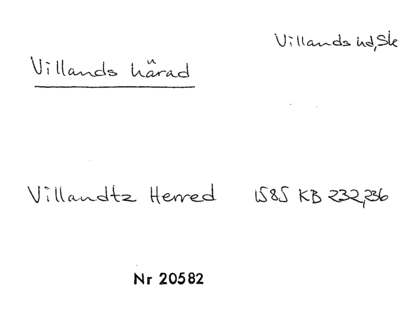 Villands hd, Sk
Villands härad
Villandtz Herred 1585 KB 232, 236
Nr 20582